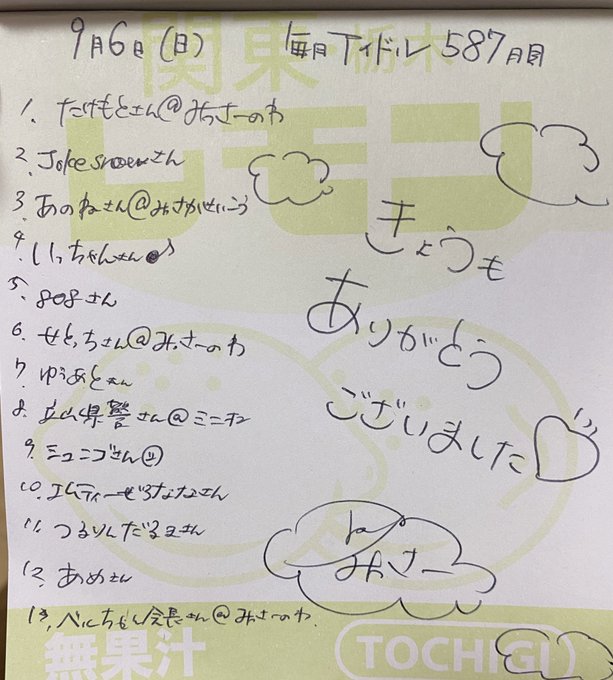 9月6日(日) 毎月アイドル 587月目
関東・栃木
レモン
1. たけもとさん@みっさーのわ
2. Jokeさん
3. あのねさん@みさがさいこう
4. いっちゃんさん♪
5. 808さん
6. せとっちさん@みっさーのわ
7. ゆうあとさん
8. 立山県警さん@ミニオン
9. ミュニゴさん
10. エムティーぜろななさん
11. つるりんだるまさん
12. あめさん
13. べにちゃん会長さん@みっさーのわ
きょうも
ありがとう
ございました
みっさー
無果汁
TOCHIGI